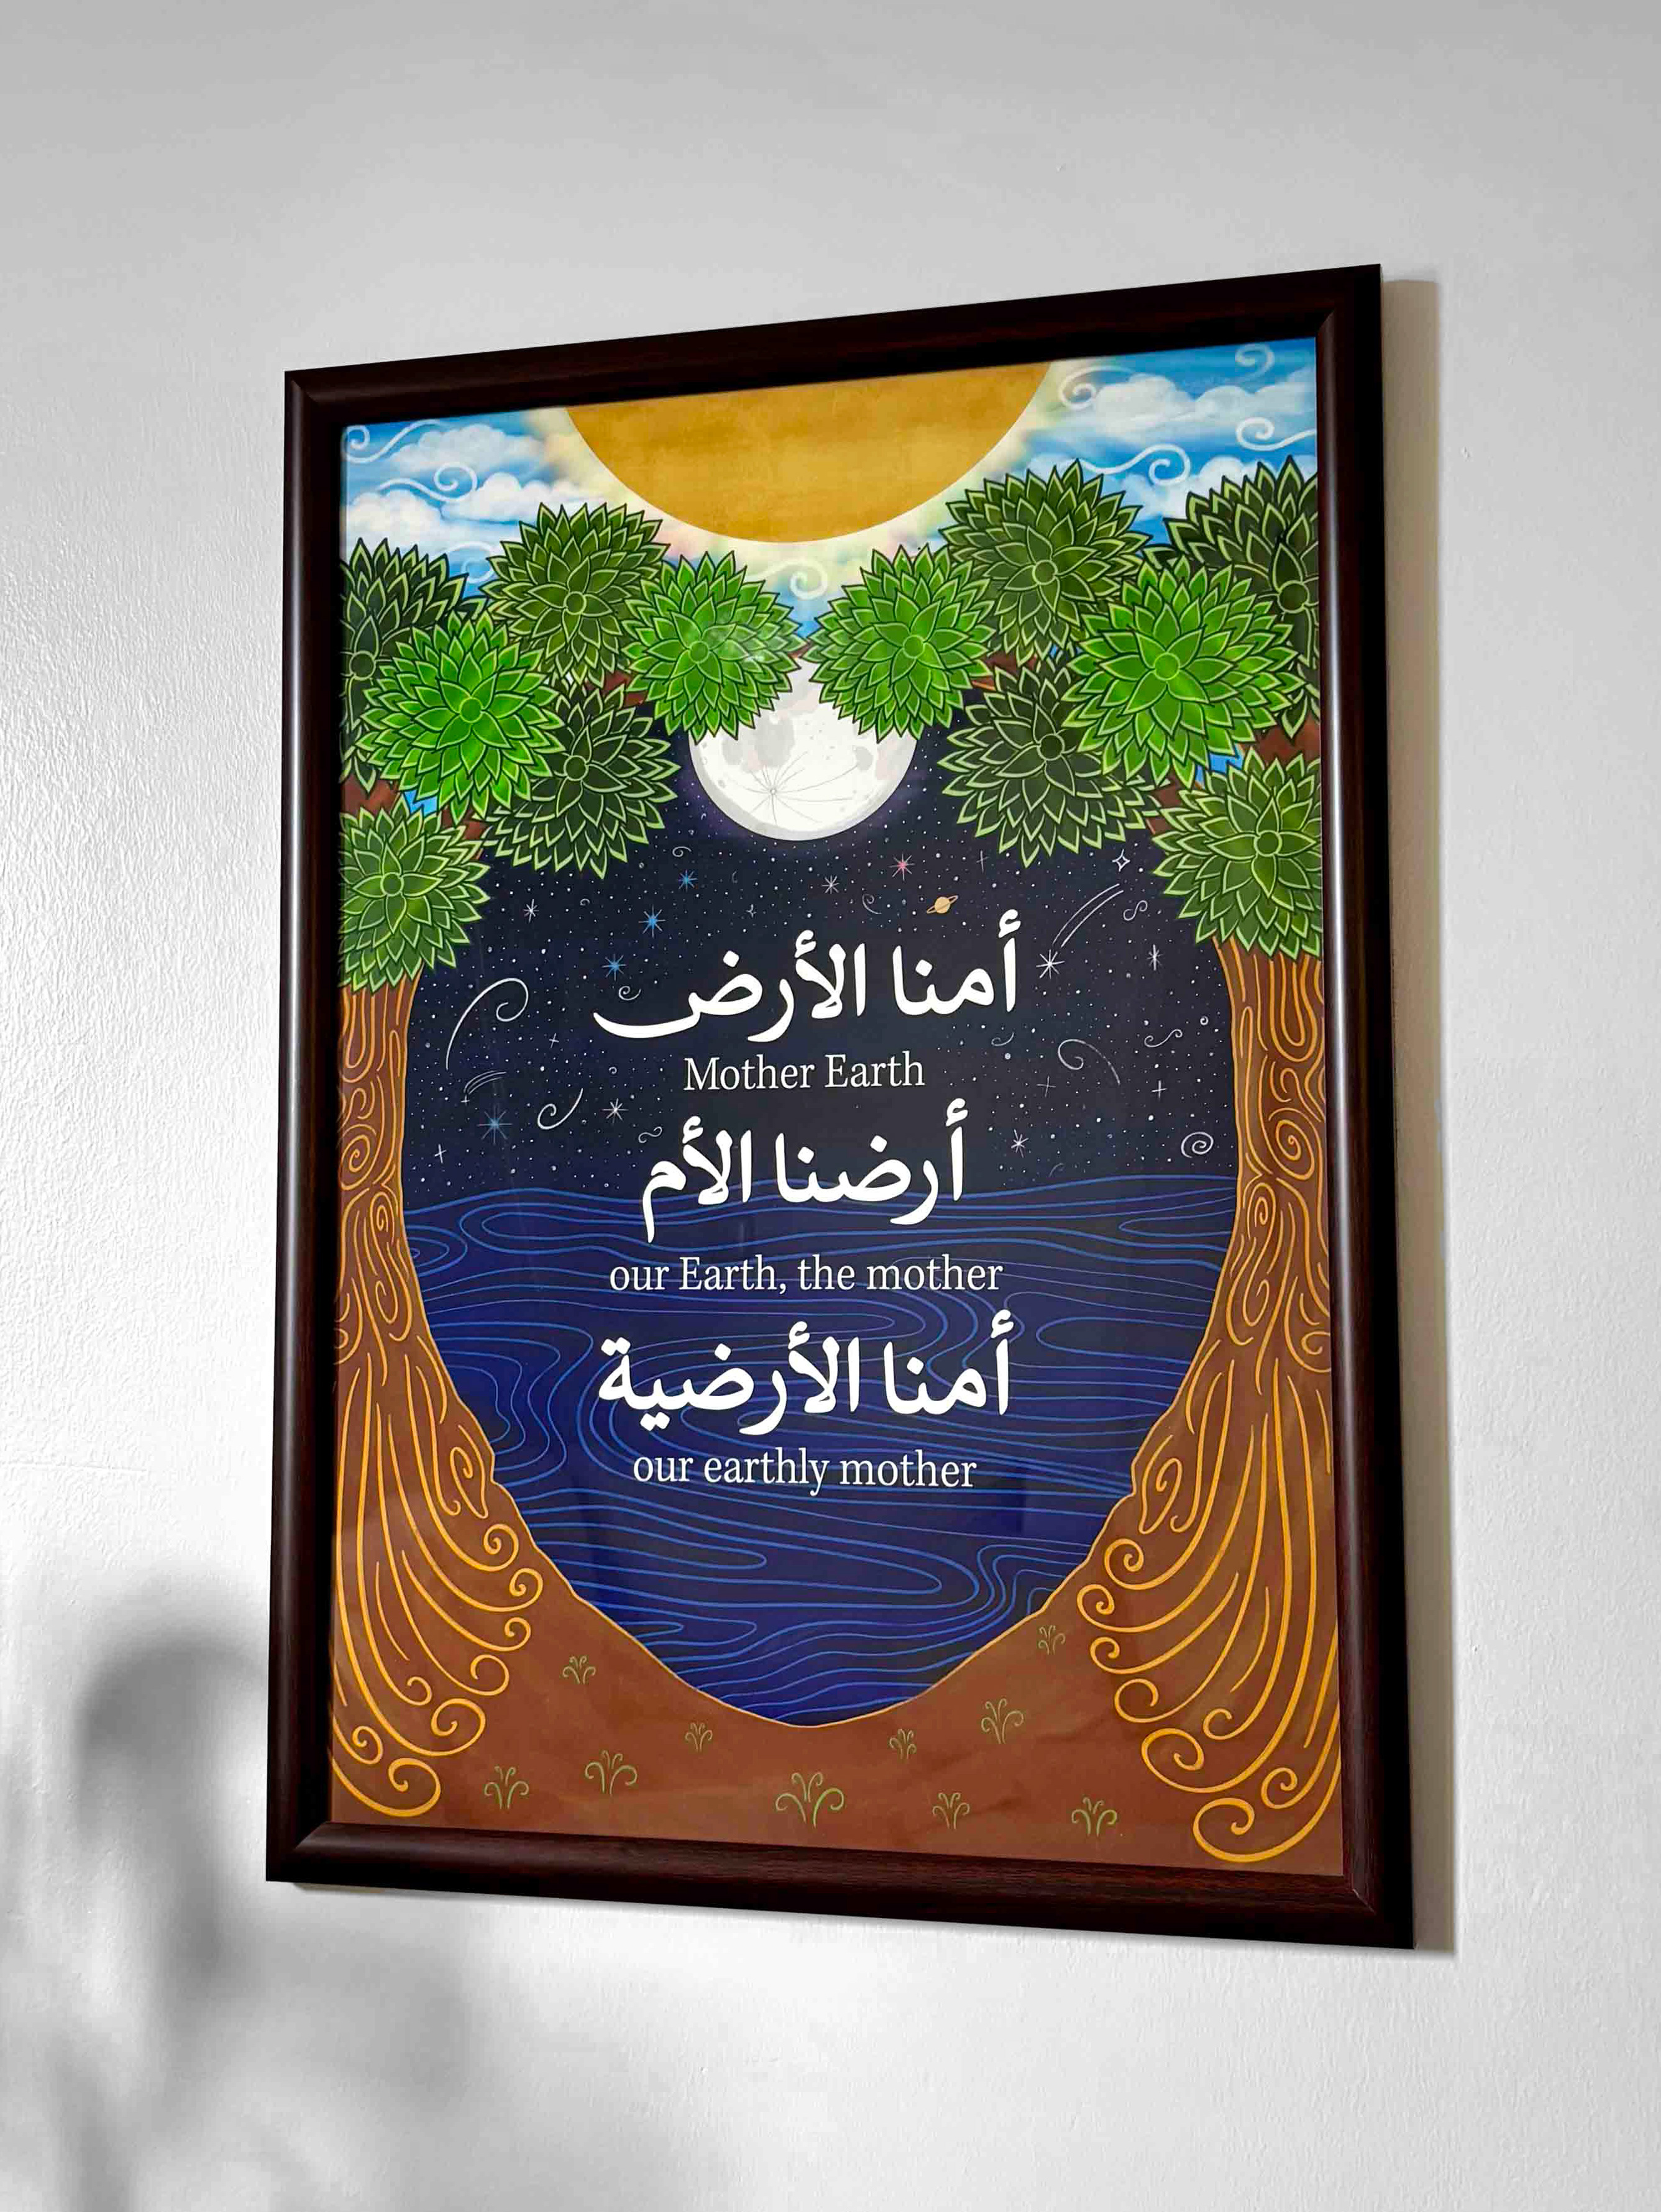 أمنا الأرض
Mother Earth
أرضنا الأم
our Earth, the mother
أمنا الأرضية
our earthly mother